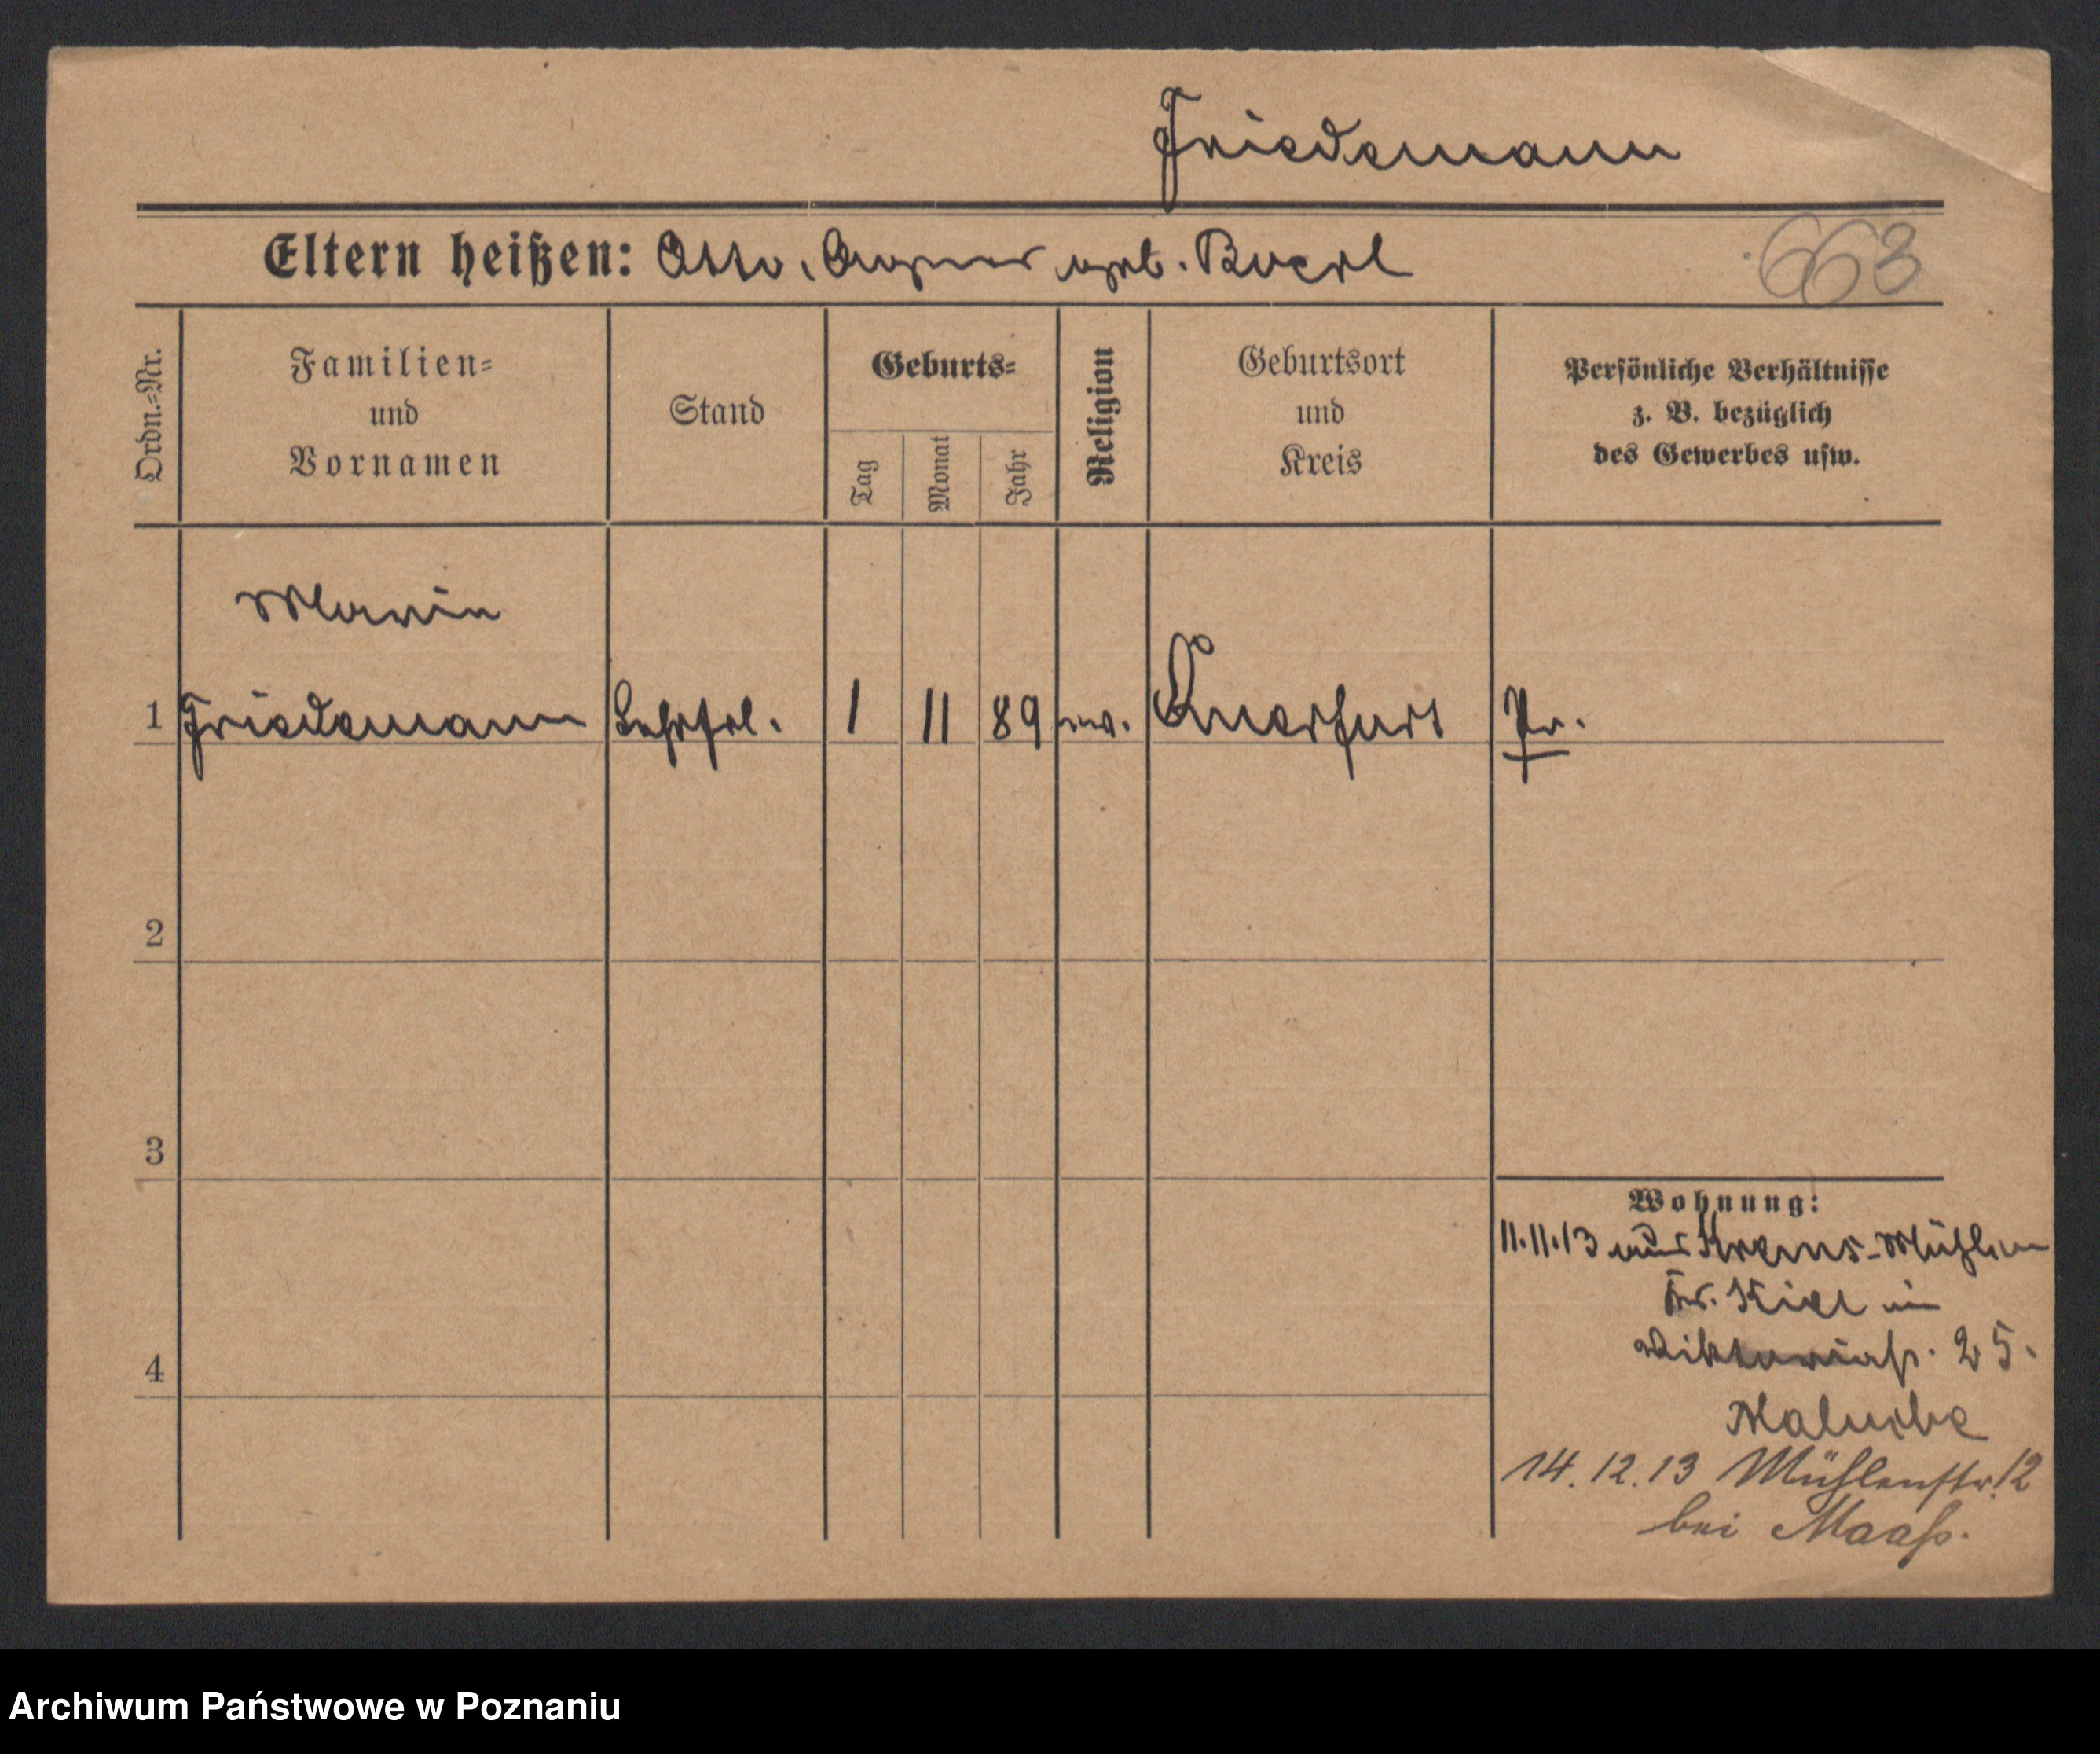 Friedemann
Eltern heißen: Otto, Agnes geb. Boerl
663
Ordn.-Nr.
Familien-
und
Vornamen
Stand
Geburts-
Tag
Monat
Jahr
Religion
Geburtsort
und
Kreis
Persönliche Verhältnisse
z. B. bezüglich
des Gewerbes usw.
Marie
1 Friedemann Lehrfrl. 1 11 89 ev. Querfurt Pr.
2
3
4
Wohnung:
11.11.13 aus Krems-Mühlen
Kr. Kiel in
Viktoriastr. 25.
14.12.13 Mühlenstr. 12
bei Maaß.
Archiwum Państwowe w Poznaniu